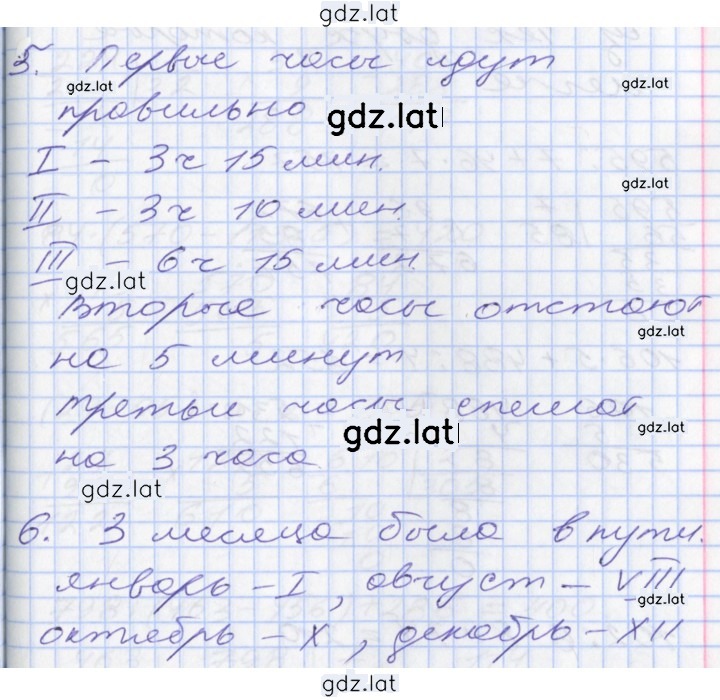 gdz.lat
5. Первые часы идут
gdz.lat gdz.lat
правильно gdz.lat
I – 3 ч 15 мин.
gdz.lat
II – 3 ч 10 мин.
III – 6 ч 15 мин.
gdz.lat
Вторые часы отстают
gdz.lat
на 5 минут
третьи часы спешат
gdz.lat gdz.lat
на 3 часа
gdz.lat
6. 3 месяца была в пути.
январь – I, август – VIII
gdz.lat
октябрь – X, декабрь – XII
gdz.lat